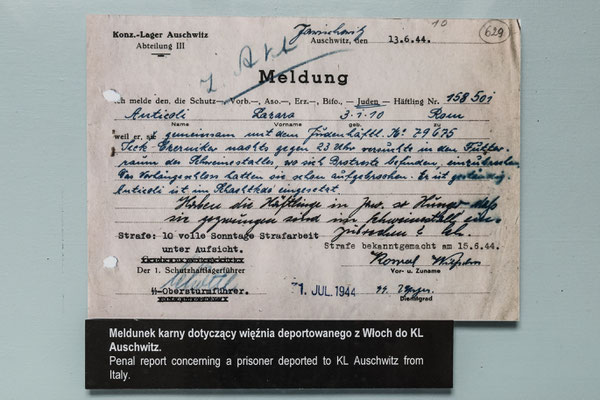 Konz.-Lager Auschwitz
Abteilung III
Jawischowitz
Auschwitz, den 13.6.44.
10
629
z. Akt
Meldung
Ich melde den, die Schutz-, Vorb.-, Aso-, Erz., Bifo., - Juden - Häftling Nr. 158501
Anticoli Lazaro 3.1.10 Rom
Name Vorname geb.
weil er, sie gemeinsam mit dem Judenhäftl. Nr 79675
nachts gegen 23 Uhr versuchte in den Futter-
raum des Schweinestalles, wo sich Brotreste befinden, einzubrechen.
Das Vorhängeschloss hatten sie schon aufgebrochen. Er ist geständig.
Anticoli ist im eingesetzt.
Haben die Häftlinge in Jaw. so Hunger daß
sie gezwungen sind im Schweinestall ein-
zubrechen?
Strafe: 10 volle Sonntage Strafarbeit
unter Aufsicht.
Strafe bekanntgemach am 15.6.44.
Der 1. Schutzhaftlagerführer
Vor- u. Zuname
SS-Obersturmführer.
1. JUL. 1944
SS
Dienstgrad
Meldunek karny dotyczący więźnia deportowanego z Włoch do KL
Auschwitz.
Penal report concerning a prisoner deported to KL Auschwitz from
Italy.